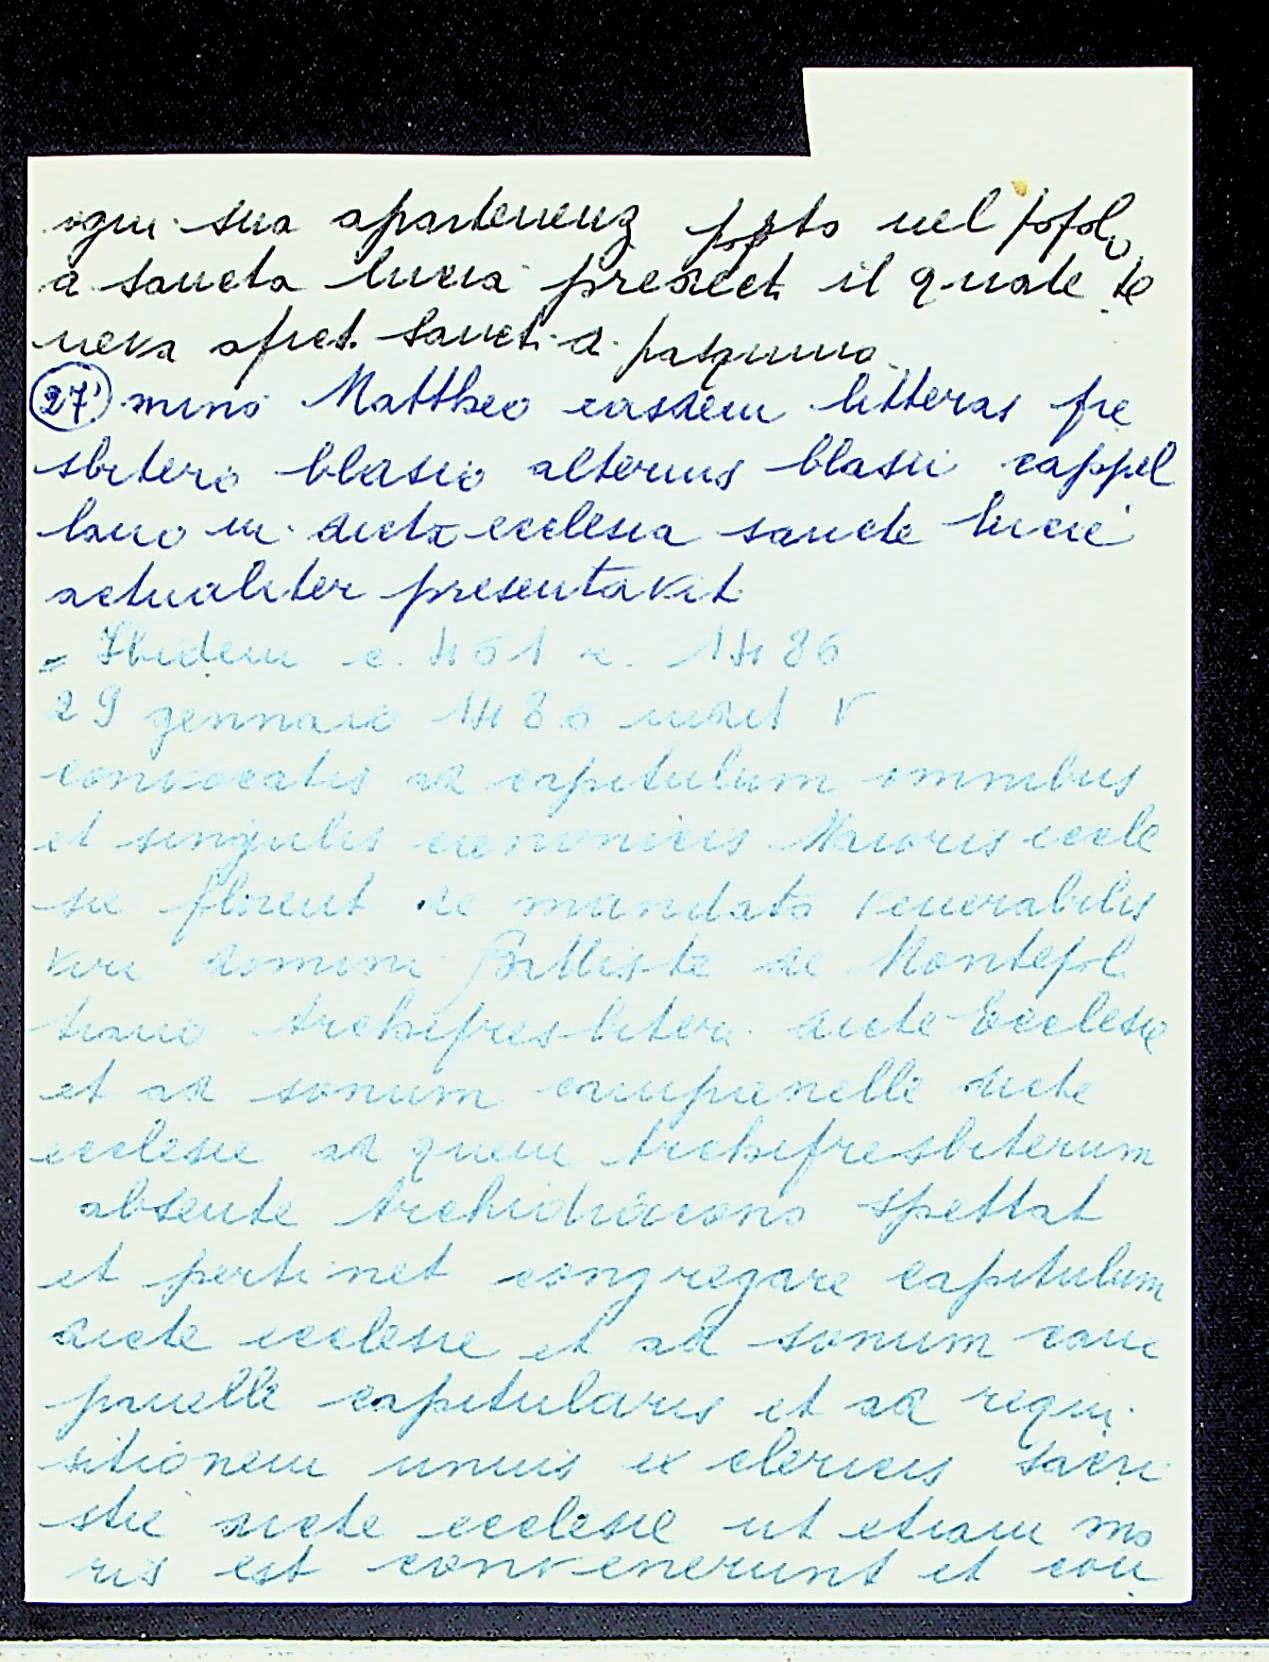 ogni sua apartenenz posto nel popolo
a sancta lucia predict. il quale te
neva apret. Sanct. a. pasquino
27' mino Mattheo easdem litteras pre
sbitero blasio alterius blasii cappel
lano in dicta ecclesia sancte lucie
actualiter presentavit
= Ibidem c. 461 r. 1486
29 gennaio 1486 indict V
convocatis ad capitulum omnibus
et singulis canonicis Maioris eccle
sie florent de mandato venerabilis
viri domini Battiste de Montepol
tiano Archipresbiteri dicte Ecclesie
et ad sonum campanelle dicte
ecclesie ad quem Archipresbiterum
absente Archidiacono spettat
et pertinet congregare capitulum
dicte ecclesie et ad sonum cam
panelle capitularis et ad requi
sitionem unius ex clericis sacri
stie dicte ecclesie ut etiam mo
ris est convenerunt et con